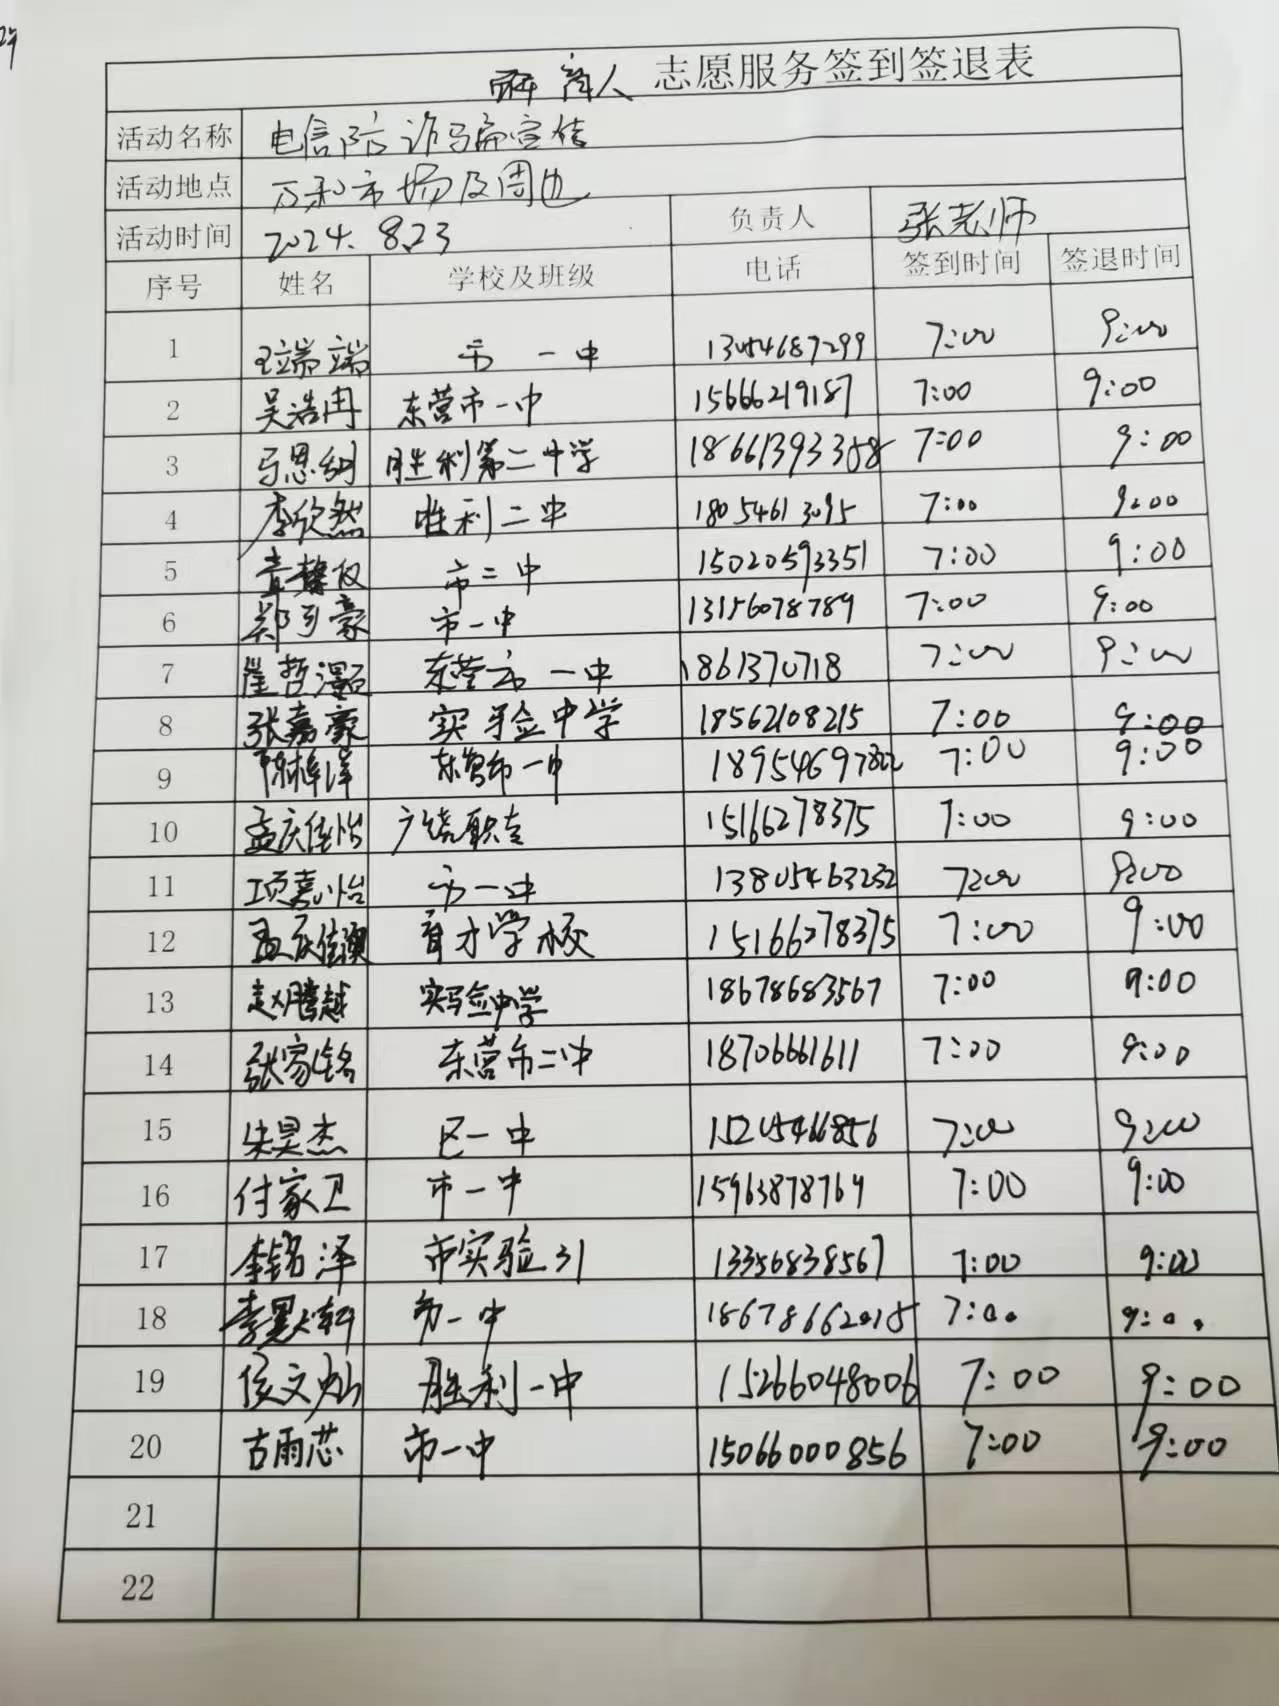 志愿服务签到签退表
活动名称 电信防诈骗宣传
活动地点 万和市场及周边
活动时间 2024.8.23 负责人 张老师
序号 姓名 学校及班级 电话 签到时间 签退时间
1 王端端 市一中 13054687299 7:00 9:00
2 吴浩冉 东营市一中 15666219187 7:00 9:00
3 马恩 胜利第二中学 18661393358 7:00 9:00
4 李欣然 胜利二中 18054613095 7:00 9:00
5 市二中 15020593351 7:00 9:00
6 郑引豪 市一中 13156078789 7:00 9:00
7 崔哲灏 东营市一中 1861370718 7:00 9:00
8 张嘉豪 实验中学 18562108215 7:00 9:00
9 陈梓洋 东营市一中 18954697822 7:00 9:00
10 孟庆佳怡 广饶职专 15166278375 7:00 9:00
11 项嘉怡 市一中 13805463232 7:00 9:00
12 孟庆佳澳 育才学校 15166278375 7:00 9:00
13 赵腾越 实验中学 18678683567 7:00 9:00
14 张家铭 东营市二中 18706661611 7:00 9:00
15 朱昊杰 区一中 15205466856 7:00 9:00
16 付家卫 市一中 15963878769 7:00 9:00
17 李铭泽 市实验31 13356838567 7:00 9:00
18 李昊轩 市一中 18678662015 7:00 9:00
19 侯文灿 胜利一中 15266048006 7:00 9:00
20 古雨芯 市一中 15066000856 7:00 9:00
21
22